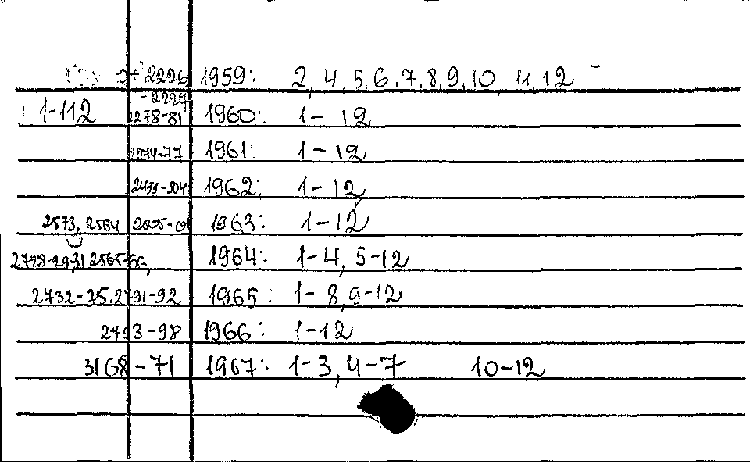 2226 1959: 2, 4, 5, 6, 7, 8, 9, 10, 11, 12
-2229
1-112 2278-81 1960: 1-12
1961: 1-12
1962: 1-12
2573, 2564 1963: 1-12
1964: 1-4, 5-12
2732-35, 2791-92 1965: 1-8, 9-12
2793-98 1966: 1-12
3168-71 1967: 1-3, 4-7 10-12